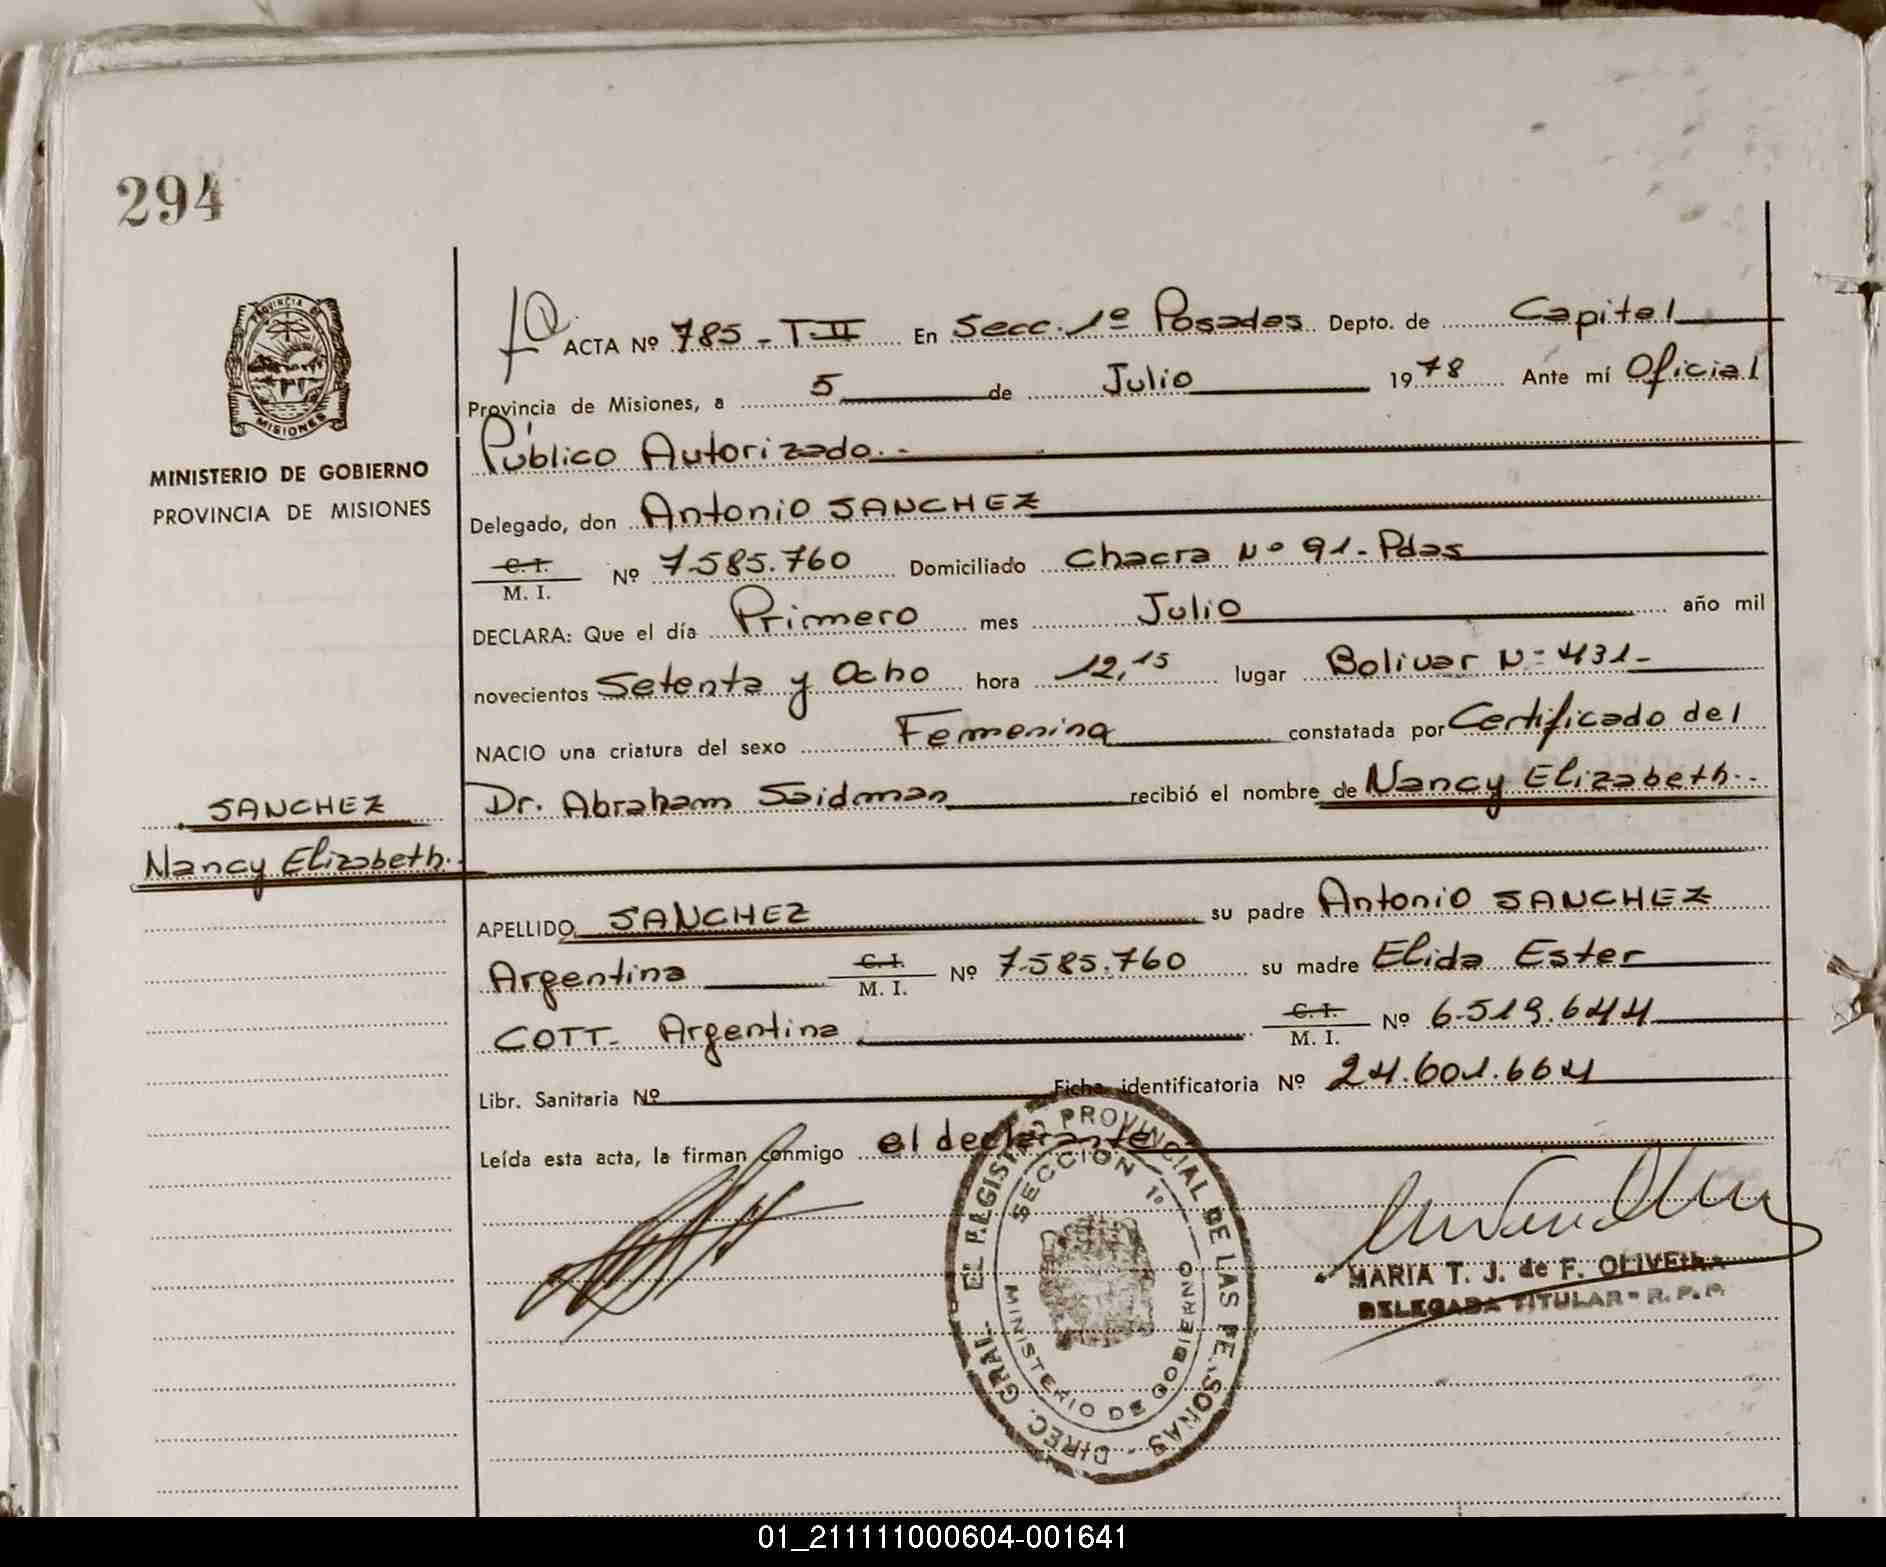 294
PROVINCIA DE
MISIONES
MINISTERIO DE GOBIERNO
PROVINCIA DE MISIONES
SANCHEZ
Nancy Elizabeth.-
ACTA Nº 785 - T-II En Secc. 1º Posadas Depto. de Capital
Provincia de Misiones, a 5 de Julio 1978 Ante mí Oficial
Público Autorizado.-
Delegado, don Antonio SANCHEZ
C. I. M. I. Nº 7.585.760 Domiciliado Chacra Nº 91- Pdas
DECLARA: Que el día Primero mes Julio año mil
novecientos Setenta y Ocho hora 12,15 lugar Bolivar N= 431-
NACIO una criatura del sexo Femenina constatada por Certificado del
Dr. Abraham Saidman recibió el nombre de Nancy Elizabeth.-
APELLIDO SANCHEZ su padre Antonio SANCHEZ
Argentina C. I. M. I. Nº 7.585.760 su madre Elida Ester
COTT- Argentina C. I. M. I. Nº 6.519.644
Libr. Sanitaria Nº Ficha identificatoria Nº 24.601.664
Leída esta acta, la firman conmigo el declarante
DIREC. GRAL. EL REGISTRO PROVINCIAL DE LAS PERSONAS -
SECCION 1º
MINISTERIO DE GOBIERNO
MARIA T. J. de F. OLIVEIRA
DELEGADA TITULAR - R. P. P.
01_211111000604-001641